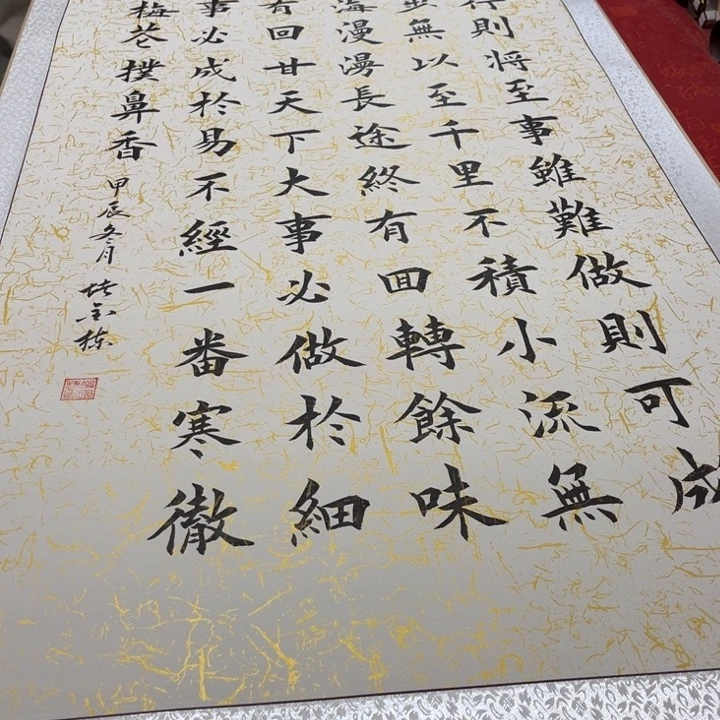 行則将至事雖難做則可成
無以至千里不積小流無
海漫漫長途終有囬轉餘味
有回甘天下大事必做於細
事必成於易不經一番寒徹
梅花撲鼻香
甲辰冬月